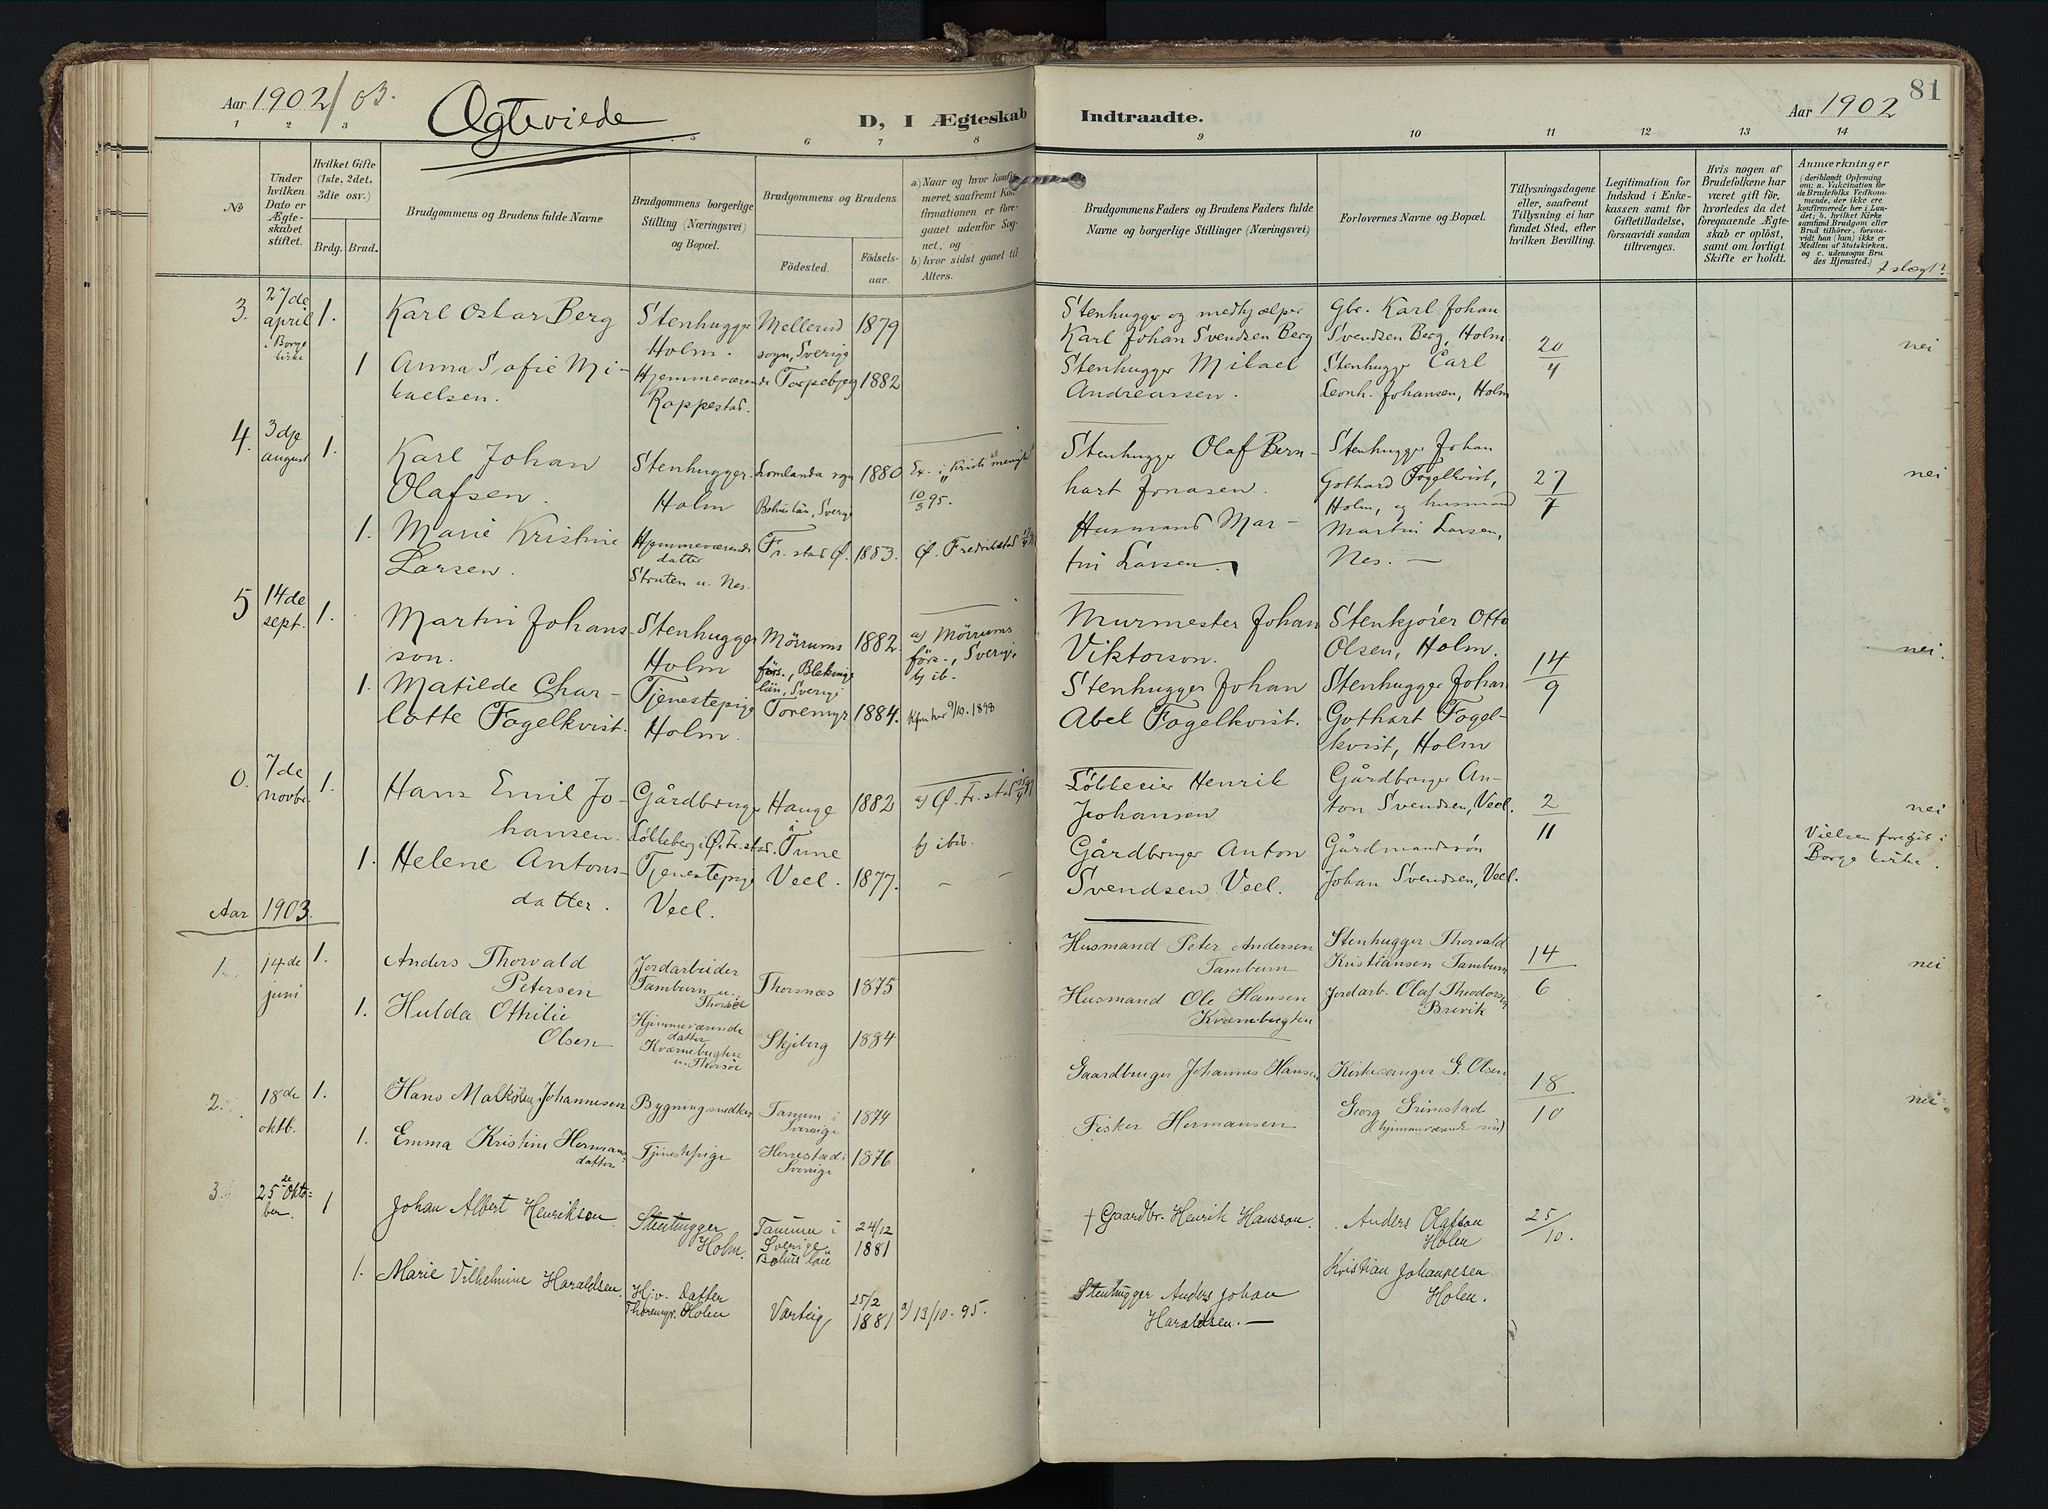 Aar 1902/03.
Ægteviede
D, I Ægteskab
Indtraadte.
Aar 1902
81
1 2 3 5 6 7 8 9 10 11 12 13 14
№
Under hvilken Dato er Ægteskabet stiftet.
Hvilket Gifte (1ste, 2det, 3die osv.)
Brdg. Brud.
Brudgommens og Brudens fulde Navne
Brudgommens borgerlige Stilling (Næringsvei) og Bopæl.
Brudgommens og Brudens
Fødested.
Fødselsaar.
a) Naar og hvor konfirmeret, saafremt Konfirmationen er foregaaet udenfor Sognet, og
b) hvor sidst gaaet til Alters.
Brudgommens Faders og Brudens Faders fulde Navne og borgerlige Stillinger (Næringsvei)
Forlovernes Navne og Bopæl.
Tillysningsdagene eller, saafremt Tillysning ei har fundet Sted, efter hvilken Bevilling.
Legitimation for Indskud i Enkekassen samt for Giftetilladelse, forsaavidt saadan tiltrænges.
Hvis nogen af Brudefolkene har været gift før, hvorledes da det foregaaende Ægteskab er opløst, samt om lovligt Skifte er holdt.
Anmærkninger
(deriblandt Oplysning om: a. Vaccination for de Brudefolks Vedkommende, der ikke ere konfirmerede her i Landet; b. hvilket Kirkesamfund Brudgom eller Brud tilhører, forsaavidt han (hun) ikke er Medlem af Statskirken, og c. udensogns Brudes Hjemsted.)
slægt?
3. 27de april i Borge kirke
1. Karl Oskar Berg
Stenhugger Holm.
Mellerud sogn, Sverige
1879
Stenhugger og medhjælper Karl Johan Svendsen Berg
Gbr. Karl Johan Svendsen Berg, Holm.
20/4
nei
1 Anna Sofie Mikaelsen.
Hjemmeværende Roppestad.
Torpebjerg
1882
Stenhugger Mikael Andreassen.
Stenhugger Carl Leonh. Johansen, Holm
4. 3dje august
1. Karl Johan Olafsen.
Stenhugger. Holm
Lomlanda sogn Bohuslän, Sverige
1880
10/3 95.
Stenhugger Olaf Bernhart Jonasen.
Stenhugger Johan Gothard Fogelkvist, Holm, og husmand Martin Larsen, Nes. —
27/7
nei
1. Marie Kristine Larsen.
Hjemmeværende datter Struten u. Nes.
Fr.stad Ø.
1883.
Ø. Fredrikstad
Husmand Martin Larsen.
5 14de sept.
1. Martin Johansson.
Stenhugger Holm
Mörrums förs., Blekinge län, Sverige
1882.
a) Mörrums förs., Sverige
b) ib.
Murmester Johan Viktorson.
Stenkjører Otto Olsen, Holm.
14/9
nei.
1. Matilde Charlotte Fogelkvist.
Tjenestepige Holm.
Toremyr
1884.
Kfm her 9/10. 1898
Stenhugger Johan Abel Fogelkvist.
Stenhugger Johan Gothart Fogelkvist, Holm
0. 7de novbr.
1. Hans Emil Johansen.
Gårdbruger Løkkeberg i Ø. Fr.stad.
Hauge i Tune
1882
a) Ø. Fr.stad
b) ibid.
Løkkeeier Henrik Johansen
Gårdbruger Anton Svendsen, Veel.
2/11
nei
Vielsen foregit i Borge kirke.
1. Helene Antonsdatter.
Tjenestepige Veel.
Veel.
1877.
Gårdbruger Anton Svendsen Veel.
Gårdmandssøn Johan Svendsen, Veel.
Aar 1903.
1. 14de juni
1. Anders Thorvald Petersen
Jordarbeider Tamburn u. Thorsøe
Thorsnæs
1875
Husmand Peter Andersen Tamburn
Stenhugger Thorvald Kristiansen Tamburn
14/6
nei
1. Hulda Othilie Olsen
Hjemmeværende datter Kværnebugten u. Thorsøe
Skjeberg
1884
Husmand Ole Hansen Kværnebugten
Jordarb. Olaf Theodorsen Brevik
2. 18de oktb.
1. Hans Malkolm Johannesen
Bygningssnedker
Tanum i Sverige
1874
Gaardbruger Johannes Hansen
Kirkesanger G. Olsen
18/10
nei
1. Emma Kristine Hermansdatter
Tjenestepige
Herrestad i Sverige
1876
Fisker Hermansen
Georg Grimstad (hjemmeværende søn)
3. 25de Oktober.
1 Johan Albert Henriksen.
Stenhugger Holm.
Tanum i Sverige Bohus län
24/12 1881
† Gaardbr. Henrik Hansson.
Anders Olafson Holm
25/10.
1. Marie Vilhelmine Haraldsen.
Hj.v. datter Thoremyr. Holm
Varteig
25/2 1881
a) 13/10. 95.
Stenhugger Anders Johan Haraldsen. —
Kristian Johannesen Holm.